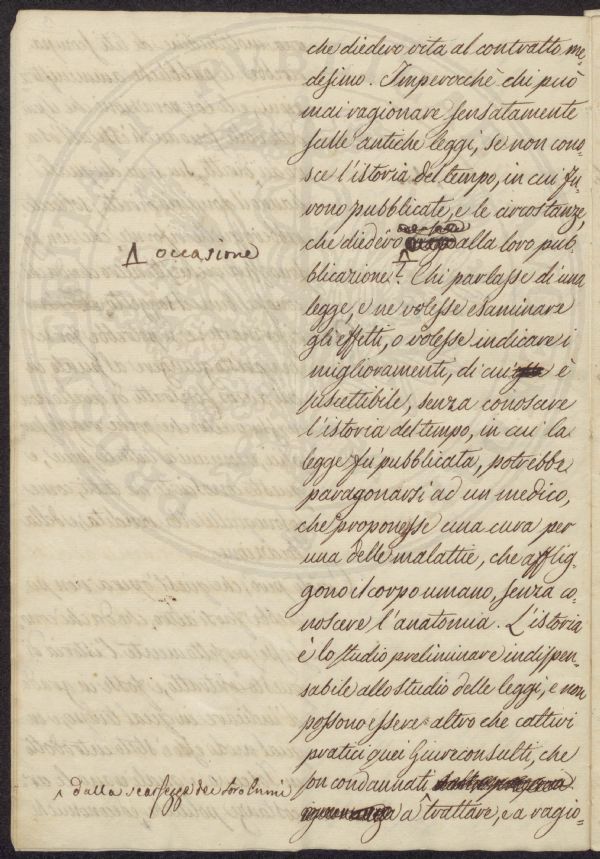 che diedero vita al contratto me-
desimo. Imperocchè chi può
mai ragionare sensatamente
sulle antiche leggi, se non cono-
sce l'istoria del tempo, in cui fu-
rono pubblicate, e le circostanze,
che diedero alla loro pub-
blicazione? Chi parlasse di una
1 occasione
legge, e ne volesse esaminare
gli effetti, o volesse indicare i
miglioramenti, di cui è
suscettibile, senza conoscere
l'istoria del tempo, in cui la
legge fù pubblicata, potrebbe
paragonarsi ad un medico,
che proponesse una cura per
una delle malattie, che afflig-
gono il corpo umano, senza co-
noscere l'anatomia. L'istoria
è lo studio preliminare indispen-
sabile allo studio delle leggi, e non
possono essere altro che cattivi
pratici quei Giureconsulti, che
son condannati
1 dalla scarsezza dei loro lumi
a trattare, e a ragio-